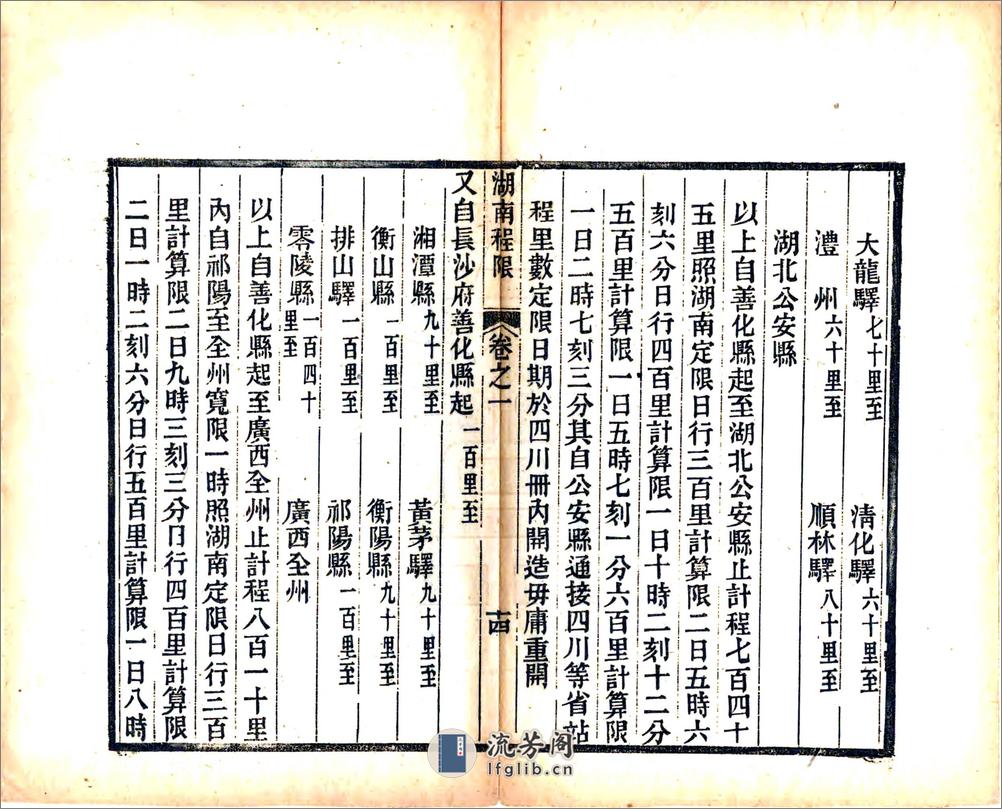 大龍驛七十里至　清化驛六十里至
澧州六十里至　順林驛八十里至
湖北公安縣
以上自善化縣起至湖北公安縣止計程七百四十
五里照湖南定限日行三百里計算限二日五時六
刻六分日行四百里計算限一日十時二刻十二分
五百里計算限一日五時七刻一分六百里計算限
一日二時七刻三分其自公安縣通接四川等省站
程里數定限日期於四川冊內開造毋庸重開
湖南程限　卷之一　十四
又自長沙府善化縣起一百里至
湘潭縣九十里至　黃茅驛九十里至
衡山縣一百里至　衡陽縣九十里至
排山驛一百里至　祁陽縣一百里至
零陵縣一百四十里至　廣西全州
以上自善化縣起至廣西全州止計程八百一十里
內自祁陽至全州寬限一時照湖南定限日行三百
里計算限二日九時三刻三分日行四百里計算限
二日一時二刻六分日行五百里計算限一日八時
流芳阁
lfglib.cn